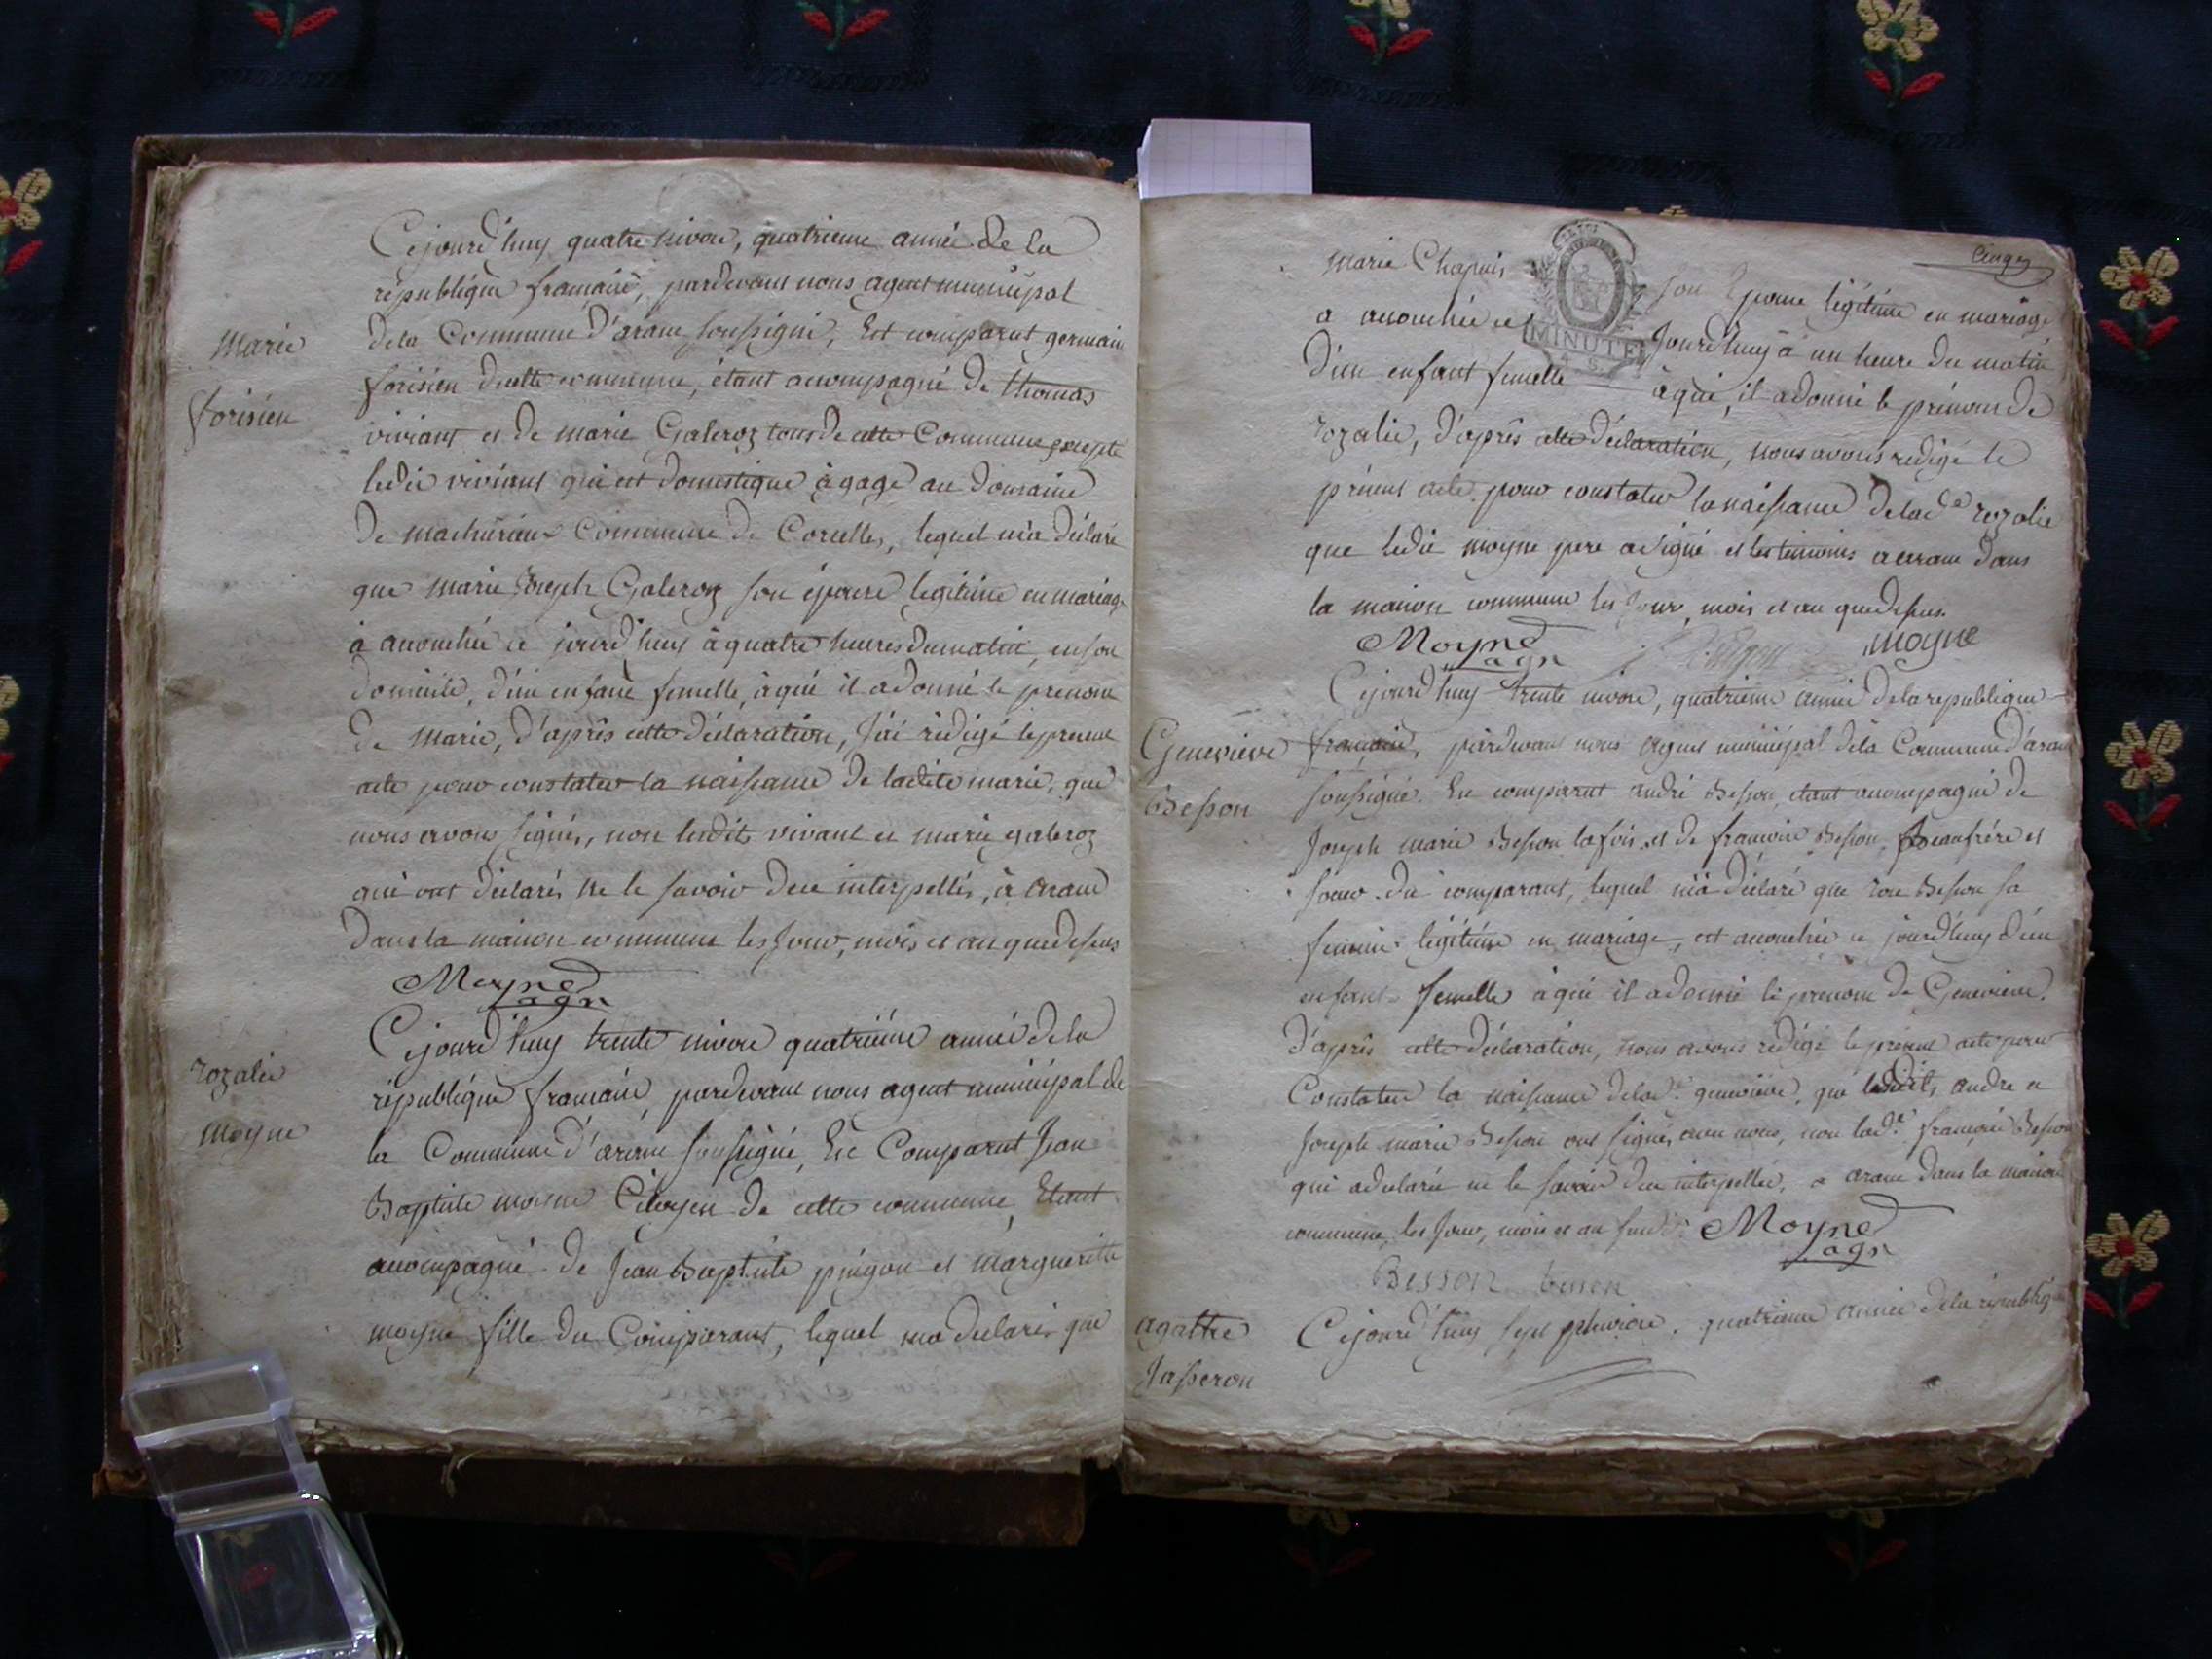 Cejourd'huy quatre nivose, quatrieme année de la
république francaise, pardevant nous agent municipal
dela Commune D'arane soussigné, Est comparut germain
Marie
forisien
forisien decette commune, étant accompagné de thomas
vivians et de marie Galeroz tous de cette Commune excepté
ledit vivians qui est domestique à gage au domaine
de machurieux Commune de Corcelles, lequel m'a déclaré
que marie Joseph Galeroz son épouse legitime en mariage
à accouchée ce jourd'huy à quatre heures dumatin, enson
domicile, d'un enfant femelle, àqui il adonné le prenom
de Marie, d'après cette déclaration, J'ai rédigé le present
acte pour constater la naissance de ladite marie, que
nous avons signés, non lesdits vivant et marie galeroz
qui ont déclarés ne le savoir dece interpellés, à arane
Dans la maison commune les Jour, mois et an quedessus
Moyne
agn
rozalie
moyne
Cejourd'huy trente nivose quatriéme année dela
république francaise, pardevant nous agent municipal de
la Commune d'arane soussigné, Est Comparut Jean
Baptiste moyne Citoyen de cette commune, Etant
accompagné de Jean Baptiste pingon et margueritte
moyne fille du Comparant, lequel ma declaré que
marie Chapuis son Epouse légitime en mariage
a accouchée ce Jourd'huy à un heure du matin
MINUTE
D'un enfant femelle àqui, il adonné le prénom de
rozalie, d'après cette déclaration, nous avons redigé le
présent acte pour constater la naissance delade rozalie
que ledit moyne pere a signé et les temoins a arane dans
la maison commune les Jour, mois et an quedessus.
Moyne
agn
moyne
Genevieve
Besson
Cejourd'huy trente nivose, quatrieme année dela republique
française, pardevant nous agent municipal dela Commune d'arane
soussigné. Est comparut andré Besson, etant accompagné de
Joseph marie Besson et de francoise Besson, Beaufrére et
soeur du comparant, lequel m'a déclaré que rose Besson sa
femme légitime en mariage, est accouchée ce jourd'huy d'un
enfant femelle àqui il adonné le prenom de Genevieve.
D'après cette déclaration, nous avons redigé le présent acte pour
Constater la naissance delade genevieve, que lesdits andre et
Joseph marie Besson ont signés avec nous, non lade françoise Besson
qui adeclarée ne le savoir dece interpellée, a arane dans la maison
commune, les Jour, mois et an
Moyne
agn
Besson besson
agathe
Jasseron
Cejourd'huy sept pluviose, quatrieme année dela république